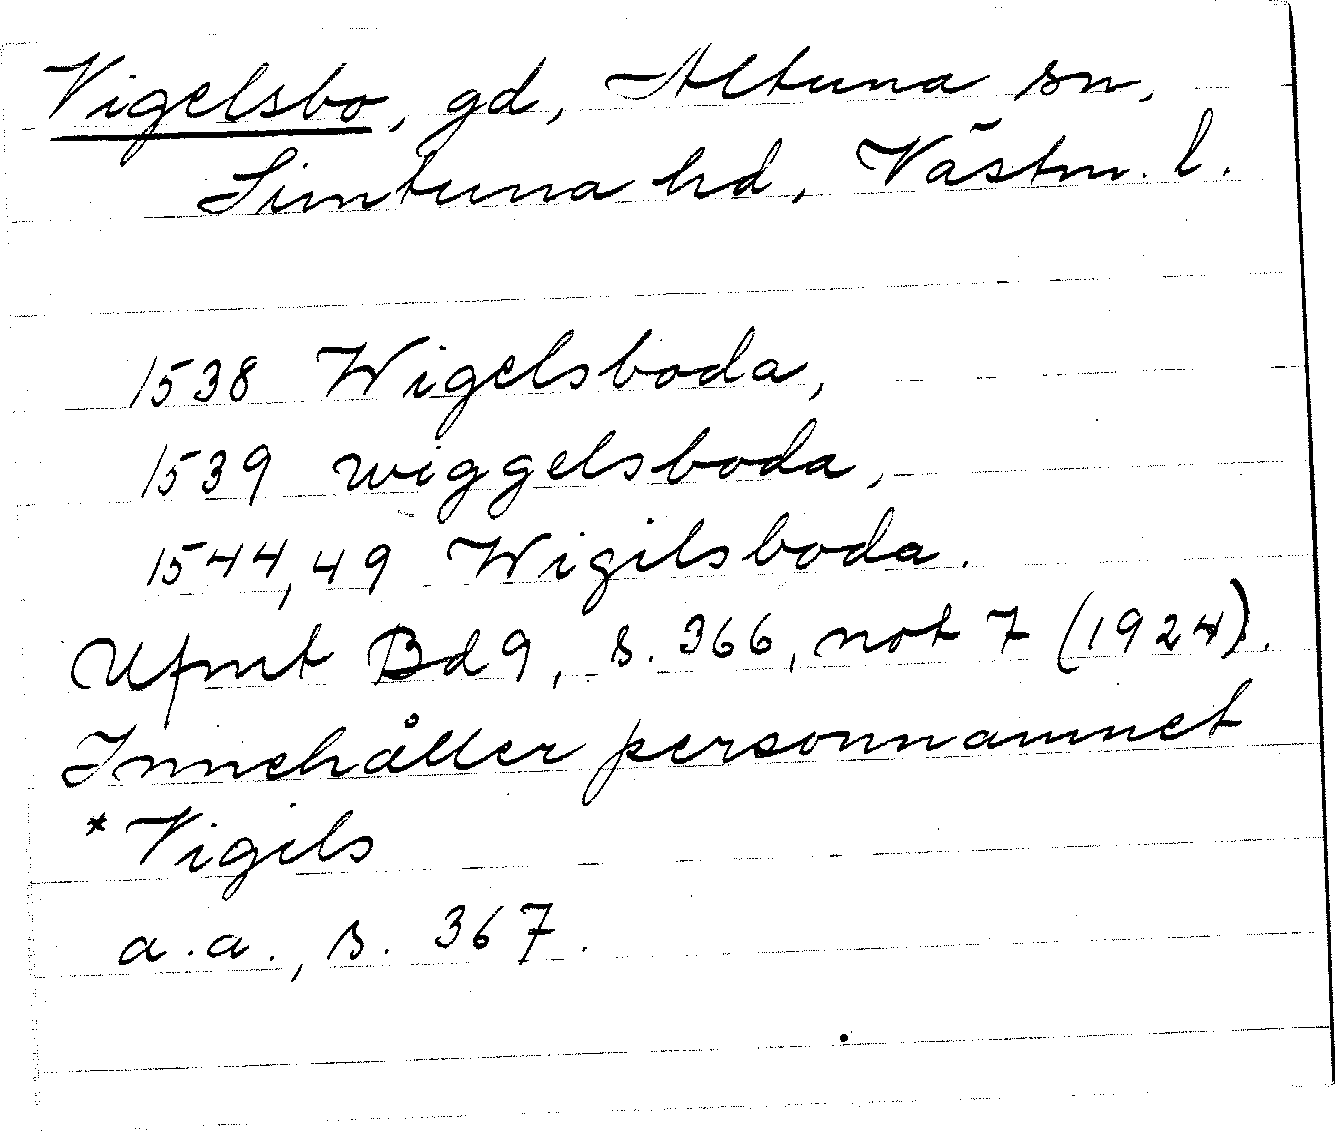 Vigelsbo, gd, Altuna sn,
Simtuna hd, Västm. l.
1538 Wigelsboda,
1539 wiggelsboda,
1544, 49 Wigilsboda.
Ufmt Bd 9, s. 366, not 7 (1924).
Innehåller personnamnet
*Vigils
a.a., s. 367.